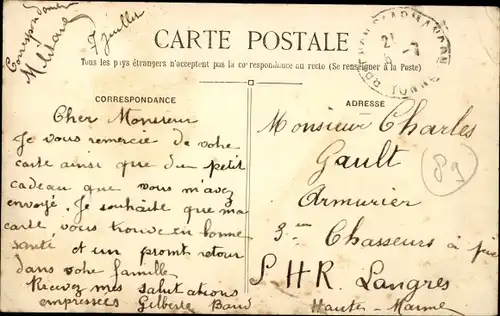 Correspondance
7 juillet
CARTE POSTALE
Tous les pays étrangers n'acceptent pas la correspondance au recto (Se renseigner à la Poste)
CORRESPONDANCE
Cher Monsieur
Je vous remercie de votre
carte ainsi que du petit
cadeau que vous m'avez
envoyé. Je souhaite que ma
carte vous trouve en bonne
santé et un promt retour
dans votre famille
Recevez mes salutations
empressées Gilberte
ADRESSE
Monsieur Charles
Gault
Armurier
3em Chasseurs à pie
S.H.R. Langres
Haute-Marne
89
YONNE